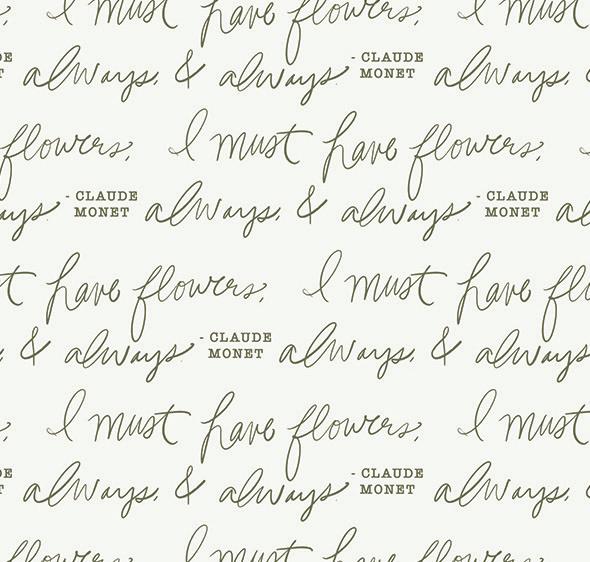 I must have flowers, I must
always, & always - CLAUDE MONET always, &
flowers, I must have flowers,
ays - CLAUDE MONET always, & always - CLAUDE MONET al
t have flowers, I must have flo
& always - CLAUDE MONET always, & always
I must have flowers, I must
always, & always - CLAUDE MONET always, &
flowers, I must have flowers,